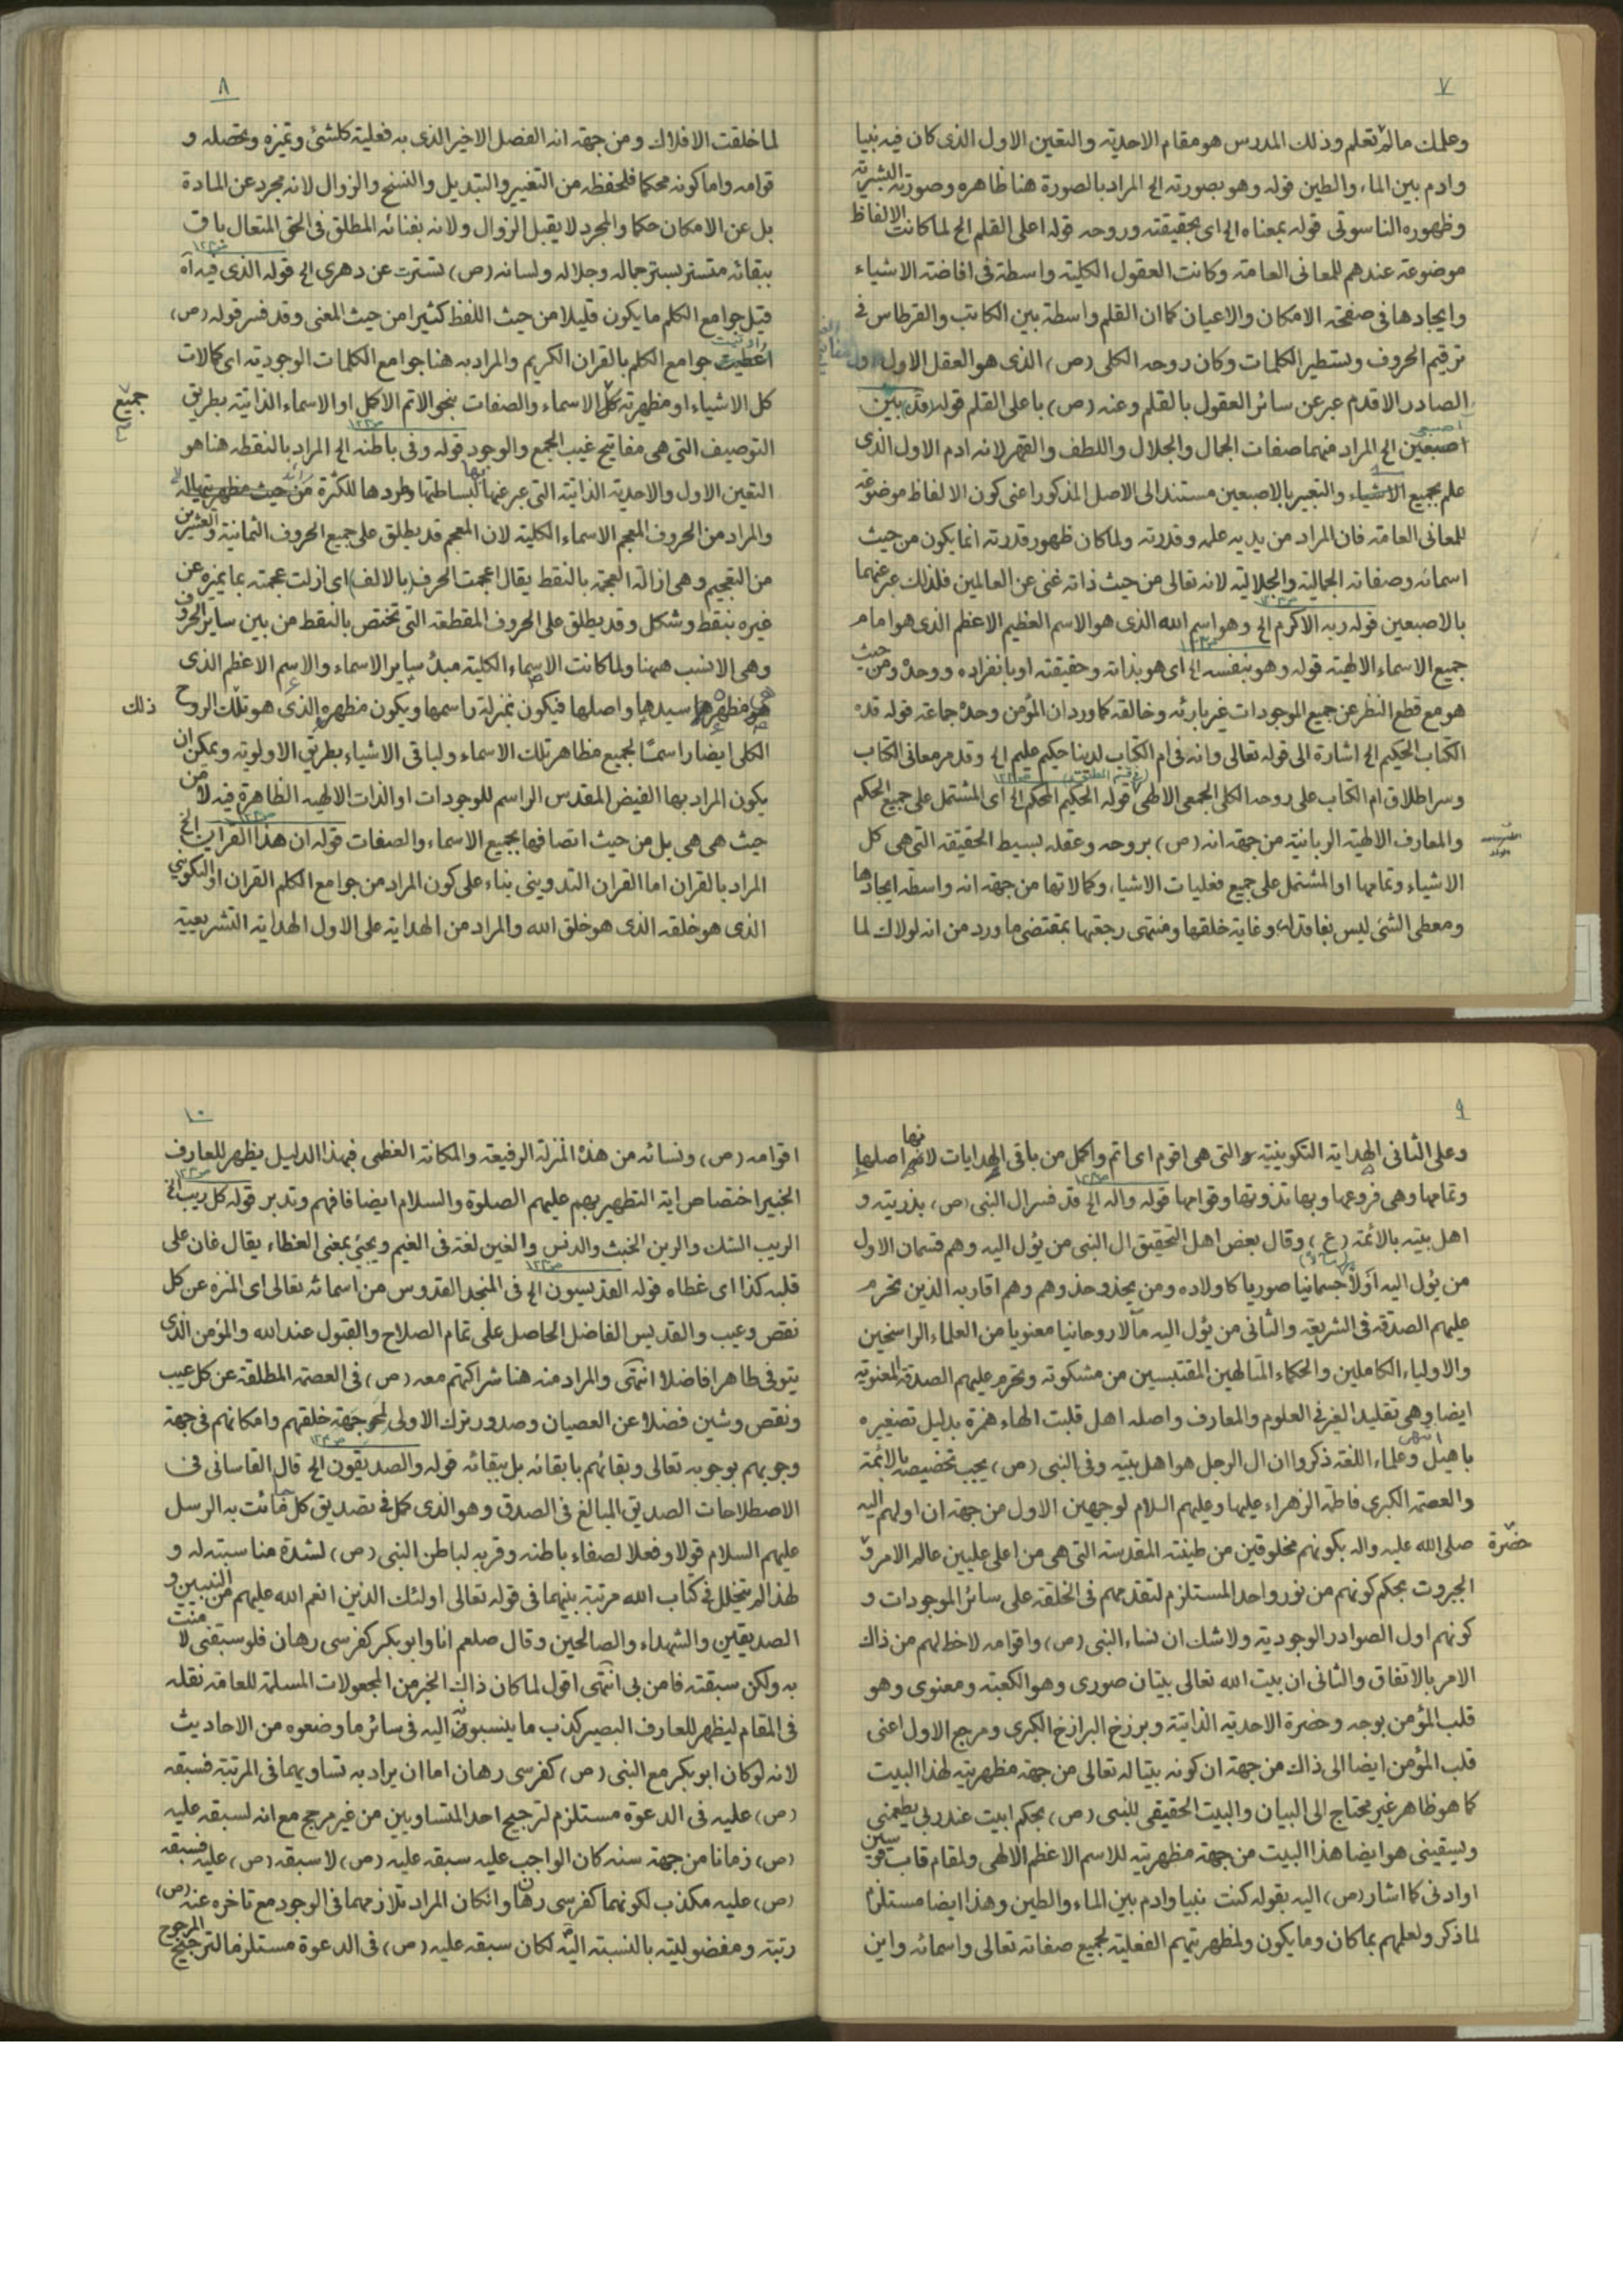 ٧
وعلمك مالم تعلم وذلك المدرس هو مقام الاحدية والتعين الاول الذى كان فيه نبيا
وادم بين الماء والطين قوله وهو بصورته الخ المراد بالصورة هنا ظاهره وصورته البشرية
وظهوره الناسوتى قوله بمعناه الخ اى بحقيقته وروحه قوله اعلى القلم الخ لما كانت الالفاظ
موضوعة عندهم للمعانى العامة وكانت العقول الكلية واسطة فى افاضة الاشياء
وايجادها فى صفحة الامكان والاعيان كما ان القلم واسطة بين الكاتب والقرطاس فى
ترقيم الحروف وتسطير الكلمات وكان روحه الكلى (ص) الذى هو العقل الاول
الصادر الاقدم عبر عن سائر العقول بالقلم وعنه (ص) باعلى القلم قوله (قده) بين
اصبعين الخ المراد منهما صفات الجمال والجلال واللطف والقهر لانه ادم الاول الذى
علم بجميع الاشياء والتعبير بالاصبعين مستند الى الاصل المذكور اعنى كون الالفاظ موضوعة
للمعانى العامة فان المراد من يديه علمه وقدرته ولما كان ظهور قدرته انما يكون من حيث
اسمائه وصفاته الجمالية والجلالية لانه تعالى من حيث ذاته غنى عن العالمين فلذلك عبر عنهما
بالاصبعين قوله ربه الاكرم الخ وهو اسم الله الذى هو الاسم العظيم الاعظم الذى هو امام
جميع الاسماء الالهية قوله وهو بنفسه الخ اى هو بذاته وحقيقته او بانفراده ووحده ومن حيث
هو مع قطع النظر عن جميع الموجودات غير بارئه وخالقه كما ورد ان المؤمن وحده جماعة قوله قده
الكتاب الحكيم الخ اشارة الى قوله تعالى وانه فى ام الكتاب لدينا حكيم عليم الخ وقد مر معانى الكتاب
وسر اطلاق ام الكتاب على روحه الكلى الجمعى الالهى قوله الحكيم المحكم الخ اى المشتمل على جميع الحكم
والمعارف الالهية الربانية من جهة انه (ص) بروحه وعقله بسيط الحقيقة التى هى كل
الاشياء وتمامها او المشتمل على جميع فعليات الاشياء وكمالاتها من جهة انه واسطة ايجادها
ومعطى الشئ ليس بفاقد له وغاية خلقها ومنتهى رجعتها بمقتضى ما ورد من انه لولاك لما
٨
لما خلقت الافلاك ومن جهة انه الفصل الاخير الذى به فعلية كلشئ وتميزه وتحصله و
قوامه واما كونه محكما فلحفظه من التغيير والتبديل والنسخ والزوال لانه مجرد عن المادة
بل عن الامكان حكما والمجرد لا يقبل الزوال ولانه بفنائه المطلق فى الحق المتعال باق
ببقائه متستر بستر جماله وجلاله ولسانه (ص) تسترت عن دهرى الخ قوله الذى فيه اه
قيل جوامع الكلم ما يكون قليلا من حيث اللفظ كثيرا من حيث المعنى وقد فسر قوله (ص)
اعطيت جوامع الكلم بالقران الكريم والمراد به هنا جوامع الكلمات الوجودية اى كمالات
كل الاشياء او مظهرية كل الاسماء والصفات بنحو الاتم الاكمل او الاسماء الذاتية بطريق
جميع
التوصيف التى هى مفاتيح غيب الجمع والوجود قوله وفى باطنه الخ المراد بالنقطة هنا هو
التعين الاول والاحدية الذاتية التى عبر عنها بها لبساطتها وطردها للكثرة من حيث مظهريتها له
والمراد من الحروف المعجم الاسماء الكلية لان المعجم قد يطلق على جميع الحروف الثمانية والعشرين
من التعجيم وهى ازالة العجمة بالنقط يقال اعجمت الحرف (بالالف) اى ازلت عجمته بما يميزه عن
غيره بنقط وشكل وقد يطلق على الحروف المقطعة التى تختص بالنقط من بين ساير الحروف
وهى الانسب هيهنا ولما كانت الاسماء الكلية مبدء ساير الاسماء والاسم الاعظم الذى
هو مظهرها سيدها واصلها فيكون بمنزلة راسمها ويكون مظهره الذى هو تلك الروح
ذلك
الكلى ايضا راسما لجميع مظاهر تلك الاسماء ولباقى الاشياء بطريق الاولوية ويمكن ان
يكون المراد بها الفيض المقدس الراسم للوجودات او الذات الالهية الظاهرة فيه لا من
حيث هى هى بل من حيث اتصافها بجميع الاسماء والصفات قوله ان هذا القران الخ
المراد بالقران اما القران التدوينى بناء على كون المراد من جوامع الكلم القران او التكوينى
الذى هو خلقه الذى هو خلق الله والمراد من الهداية على الاول الهداية التشريعية
٩
وعلى الثانى الهداية التكوينية والتى هى اقوم اى اتم واكمل من باقى الهدايات لانها اصلها
وتمامها وهى فروعها وبها تذوتها وقوامها قوله واله الخ قد فسر ال النبى (ص) بذريته و
اهل بيته بالائمة (ع) وقال بعض اهل التحقيق ال النبى من يؤل اليه وهم قسمان الاول
من يؤل اليه اولا جسمانيا صوريا كاولاده ومن يحذو حذوهم وهم اقاربه الذين تحرم
عليهم الصدقة فى الشريعة والثانى من يؤل اليه مآلا روحانيا معنويا من العلماء الراسخين
والاولياء الكاملين والحكماء المتالهين المقتبسين من مشكوته وتحرم عليهم الصدقة المعنوية
ايضا وهى تقليد الغير فى العلوم والمعارف واصله اهل قلبت الهاء همزة بدليل تصغيره
باهيل انتهى وعلماء اللغة ذكروا ان ال الرجل هو اهل بيته وفى النبى (ص) يجب تخصيصه بالائمة
والعصمة الكبرى فاطمة الزهراء عليها وعليهم السلام لوجهين الاول من جهة ان اولهم اليه
صلى الله عليه واله بكونهم مخلوقين من طينته المقدسة التى هى من اعلى عليين عالم الامر و
حضرة
الجبروت بحكم كونهم من نور واحد المستلزم لتقدمهم فى الخلقة على سائر الموجودات و
كونهم اول الصوادر الوجودية ولاشك ان نساء النبى (ص) واقوامه لاحظ لهم من ذاك
الامر بالاتفاق والثانى ان بيت الله تعالى بيتان صورى وهو الكعبة ومعنوى وهو
قلب المؤمن بوجه وحضرة الاحدية الذاتية وبرزخ البرازخ الكبرى ومرجع الاول اعنى
قلب المؤمن ايضا الى ذاك من جهة ان كونه بيتا له تعالى من جهة مظهريته لهذا البيت
كما هو ظاهر غير محتاج الى البيان والبيت الحقيقى للنبى (ص) بحكم ابيت عند ربى يطعمنى
ويسقينى هو ايضا هذا البيت من جهة مظهريته للاسم الاعظم الالهى ولمقام قاب قوسين
او ادنى كما اشار (ص) اليه بقوله كنت نبيا وادم بين الماء والطين وهذا ايضا مستلزم
لما ذكر ولعلمهم بما كان وما يكون ولمظهريتهم الفعلية لجميع صفاته تعالى واسمائه واين
١٠
اقوامه (ص) ونسائه من هذه المنزلة الرفيعة والمكانة العظمى فبهذا الدليل يظهر للعارف
الخبير اختصاص اية التطهير بهم عليهم الصلوة والسلام ايضا فافهم وتدبر قوله كل ريب الخ
الريب الشك والرين الخبث والدنس والغين لغة فى الغيم ويجئ بمعنى الغطاء يقال غان على
قلبه كذا اى غطاه قوله القديسيون الخ فى المنجد القدوس من اسمائه تعالى اى المنزه عن كل
نقص وعيب والقديس الفاضل الحاصل على تمام الصلاح والقبول عند الله والمؤمن الذى
يتوفى طاهرا فاضلا انتهى والمراد منه هنا شراكتهم معه (ص) فى العصمة المطلقة عن كل عيب
ونقص وشين فضلا عن العصيان وصدور ترك الاولى لمحو جهة خلقهم وامكانهم فى جهة
وجوبهم بوجوبه تعالى وبقائهم بابقائه بل ببقائه قوله والصديقون الخ قال القاسانى فى
الاصطلاحات الصديق المبالغ فى الصدق وهو الذى كمل فى تصديق كل ما جائت به الرسل
عليهم السلام قولا وفعلا لصفاء باطنه وقربه لباطن النبى (ص) لشدة مناسبته له و
لهذا لم يتخلل فى كتاب الله مرتبة بينهما فى قوله تعالى اولئك الذين انعم الله عليهم من النبيين و
الصديقين والشهداء والصالحين وقال صلعم انا وابوبكر كفرسى رهان فلو سبقنى لا منت
به ولكن سبقته فامن بى انتهى اقول لما كان ذاك الخبر من المجعولات المسلمة للعامة نقله
فى المقام ليظهر للعارف البصير كذب ما ينسبونه اليه فى سائر ما وضعوه من الاحاديث
لانه لو كان ابوبكر مع النبى (ص) كفرسى رهان اما ان يراد به تساويهما فى المرتبة فسبقه
(ص) عليه فى الدعوة مستلزم لترجيح احد المتساويين من غير مرجح مع انه لسبقه عليه
(ص) زمانا من جهة سنه كان الواجب عليه سبقه عليه (ص) لا سبقه (ص) عليه فسبقه
(ص) عليه مكذب لكونهما كفرسى رهان وانكان المراد تلازمهما فى الوجود مع تاخره عنه (ص)
رتبة ومفضوليته بالنسبة اليه لكان سبقه عليه (ص) فى الدعوة مستلزما لترجيح المرجوح